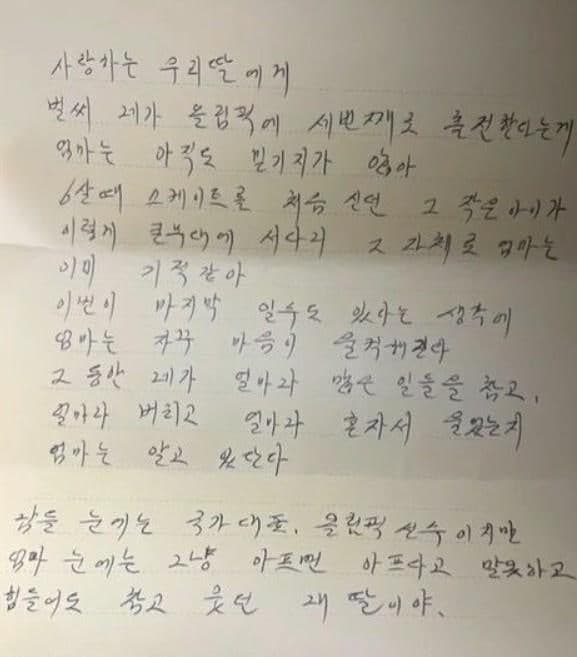 사랑하는 우리딸에게
벌써 네가 올림픽에 세번째로 출전한다는게
엄마는 아직도 믿기지가 않아
6살때 스케이트를 처음 신던 그 작은아이가
이렇게 큰무대에 서다니 그 자체로 엄마는
이미 기적같아
이번이 마지막 일수도 있다는 생각에
엄마는 자꾸 마음이 울컥해진다
그 동안 네가 얼마나 많은 일들을 참고,
얼마나 버티고 얼마나 혼자서 울었는지
엄마는 알고 있단다
남들 눈에는 국가대표, 올림픽 선수이지만
엄마 눈에는 그냥 아프면 아프다고 말못하고
힘들어도 참고 웃던 내 딸이야.